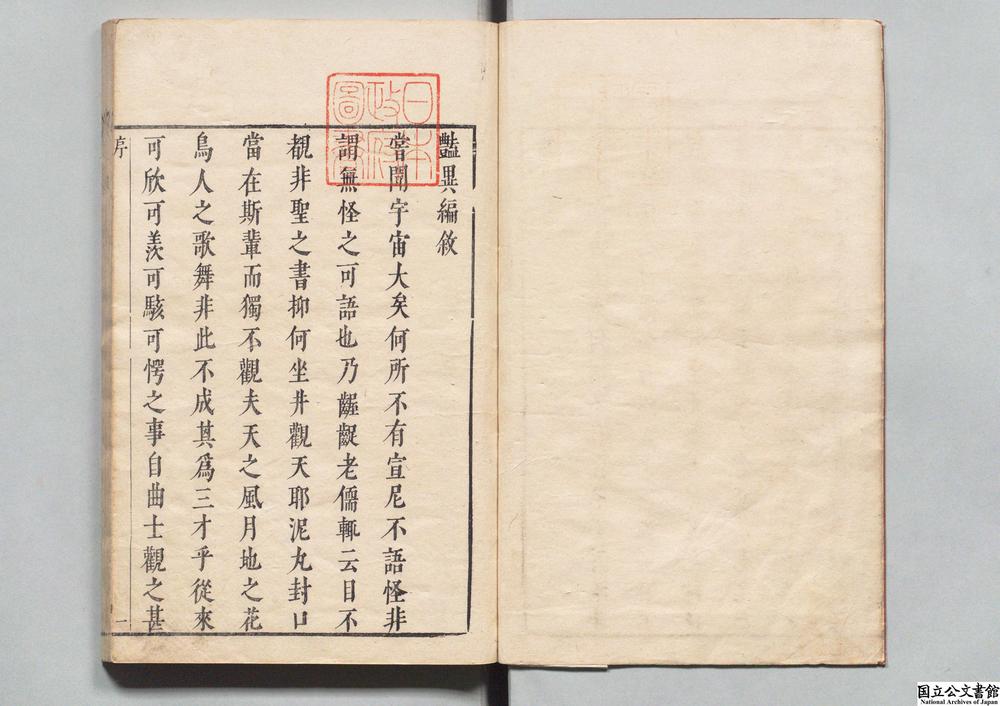 日本
政府
圖書
豔異編敘
嘗聞宇宙大矣何所不有宣尼不語怪非
謂無怪之可語也乃齷齪老儒輒云目不
覩非聖之書抑何坐井觀天耶泥丸封口
當在斯輩而獨不觀夫天之風月地之花
鳥人之歌舞非此不成其爲三才乎從來
可欣可羨可駭可愕之事自曲士觀之甚
序 一
国立公文書館
National Archives of Japan